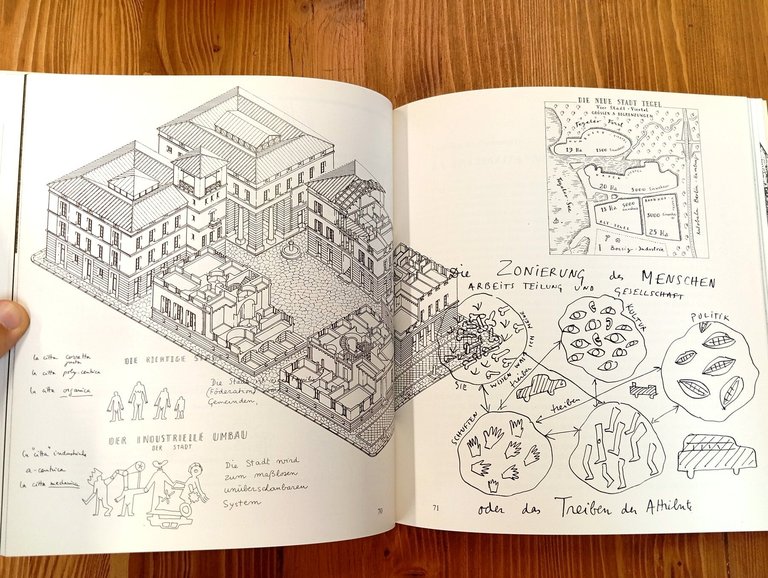 la città corretta
giusta
la città poly-centrica
la città organica
DIE RICHTIGE STADT
Die Stadt
(Föderation)
Gemeinden.
DER INDUSTRIELLE UMBAU
DER STADT
la "città" industriale
a-centrica
la città meccanica
Die Stadt wird
zum maßlosen
unüberschaubaren
System
70
DIE NEUE STADT TEGEL
Vier Stadt-Viertel
GRÖSSEN & BEGRENZUNGEN
Tegeler Forst
15 Ha 1500 Einwohner
20 Ha 5000 Einwohner
Tegeler See
15 Ha 5000
Einwohner
5000
Einwohner
25 Ha
ALT-TEGEL
Borsig-Industrie
Autobahn Berlin Hamburg
Die ZONIERUNG des MENSCHEN
ARBEITSTEILUNG UND GESELLSCHAFT
KULTUR
POLITIK
SIE WISSEN
treiben
treiben
SCHUFTEN
oder das Treiben der Attribute
71